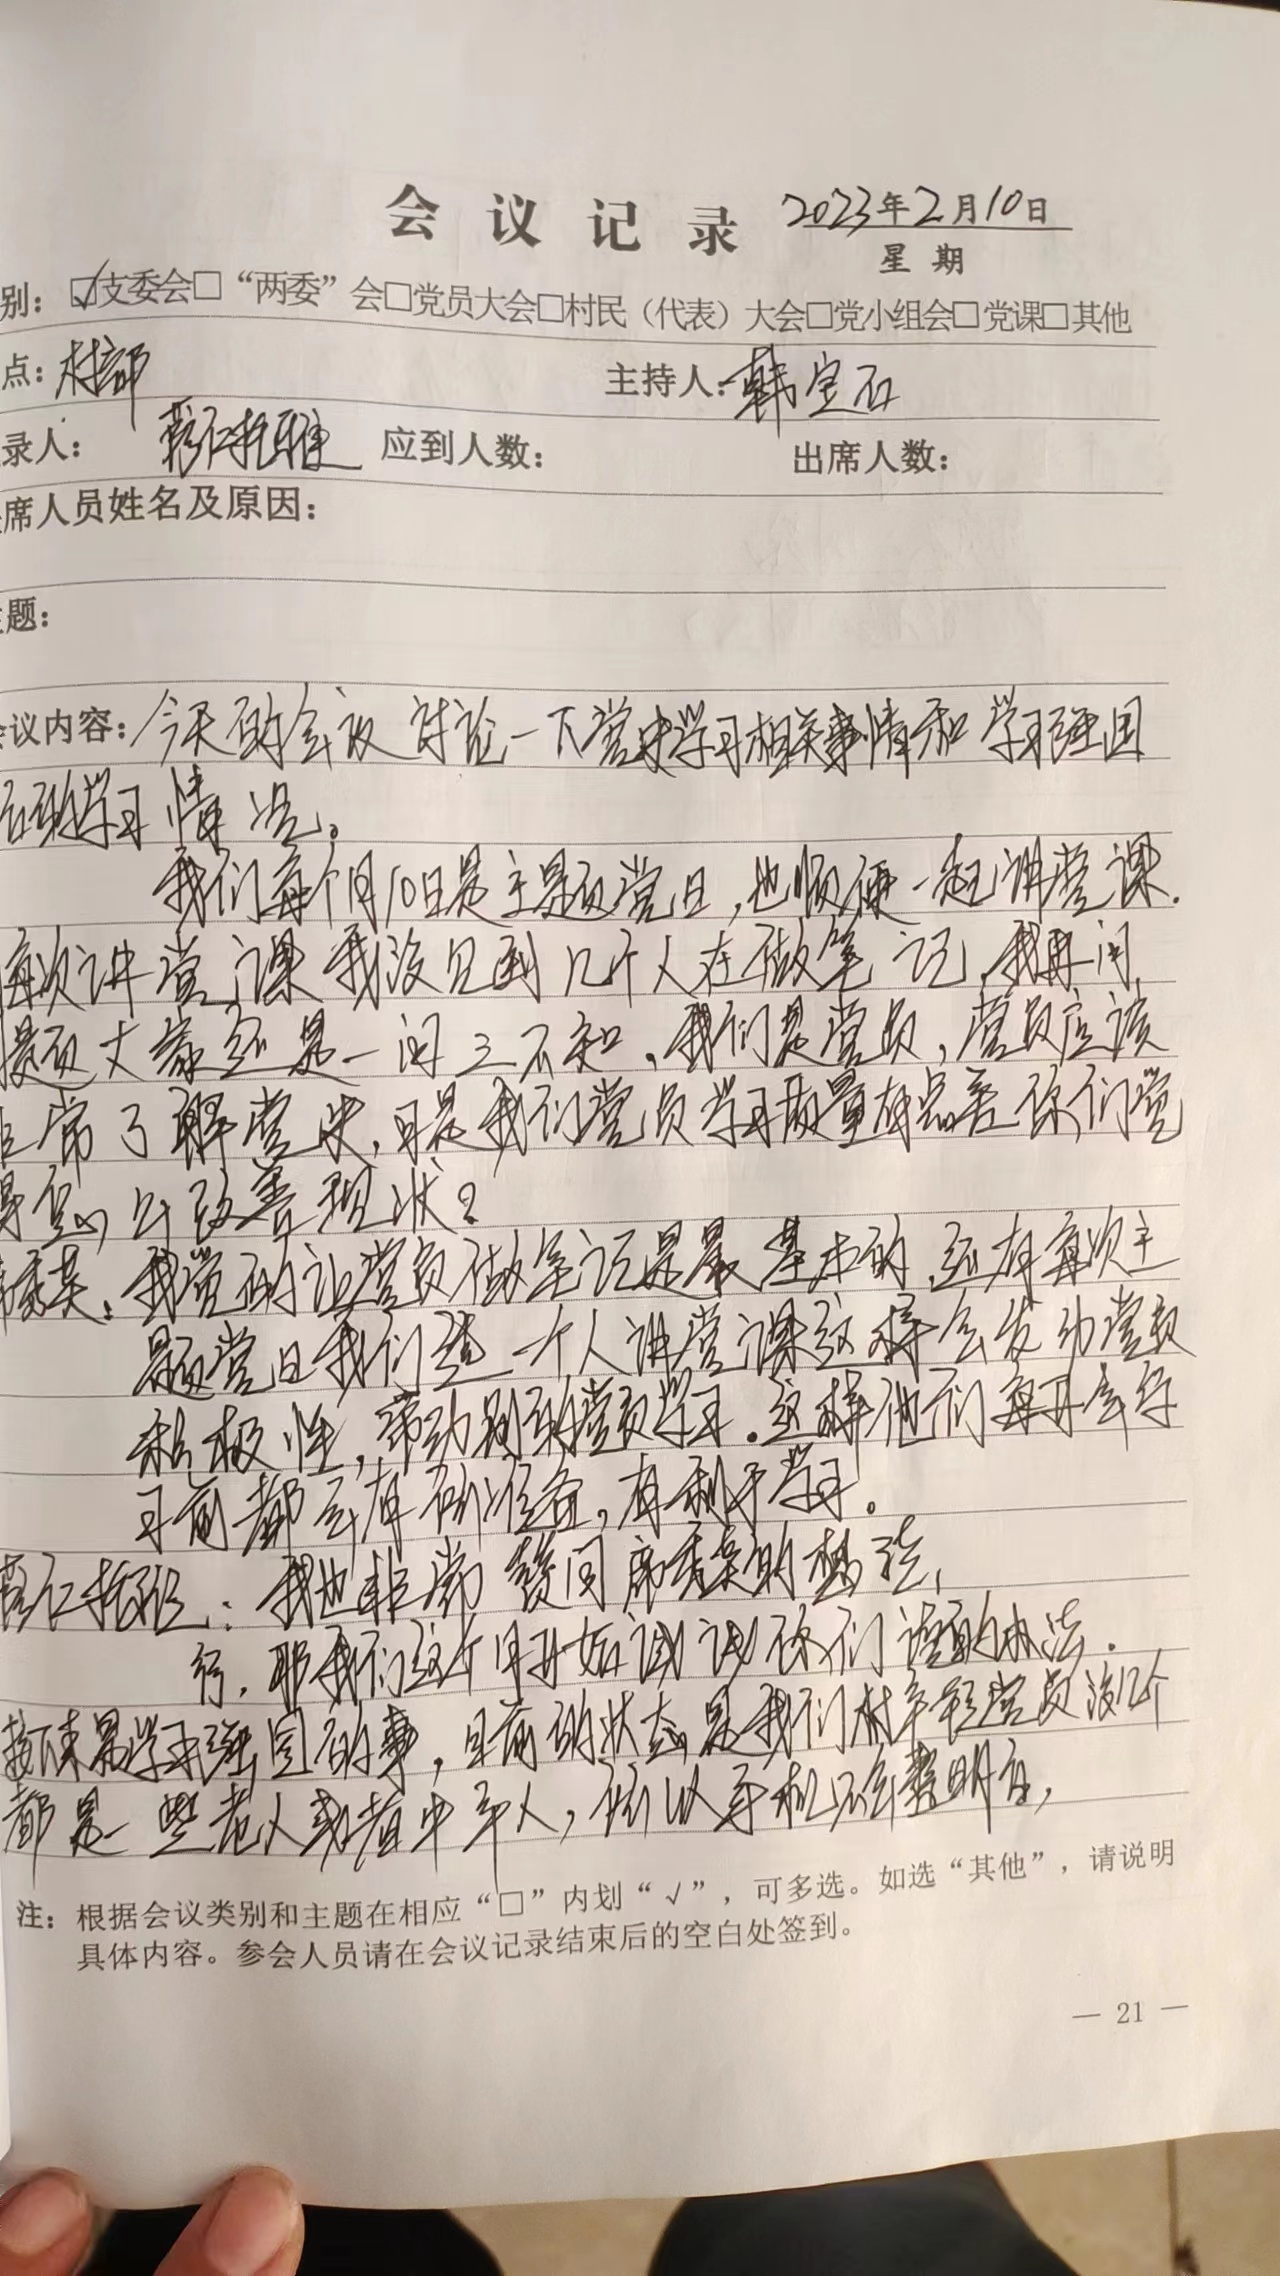 会议记录 2023年2月10日
星期
别：☑支委会□“两委”会□党员大会□村民（代表）大会□党小组会□党课□其他
点：村部 主持人：韩宝石
录人： 仁托雅 应到人数： 出席人数：
席人员姓名及原因：
题：
议内容：今天的会议讨论一下党史学习相关事情和学习强国
的学习情况。
我们每个月10日是主题党日，也顺便一起讲党课.
每次讲党课我没见到几个人在做笔记，我再问
题大家还是一问三不知，我们是党员，党员应该
非常了解党史，可是我们党员学习质量有点差你们觉
得怎么改善现状？
秀英：我觉的让党员做笔记是最基本的，还有每次主
题党日我们选一个人讲党课这样会发动党员
积极性，带动别的党员学习。这样他们每开会学
习前都会有所准备，有利于学习。
仁托娅：我也非常赞同席秀英的想法，
行，那我们这个月开始试试你们说的办法.
接下来是学习强国的事，目前的状态是我们村年轻党员没几个
都是一些老人或者中年人，所以手机不会整明白，
注：根据会议类别和主题在相应“□”内划“√”，可多选。如选“其他”，请说明
具体内容。参会人员请在会议记录结束后的空白处签到。
— 21 —